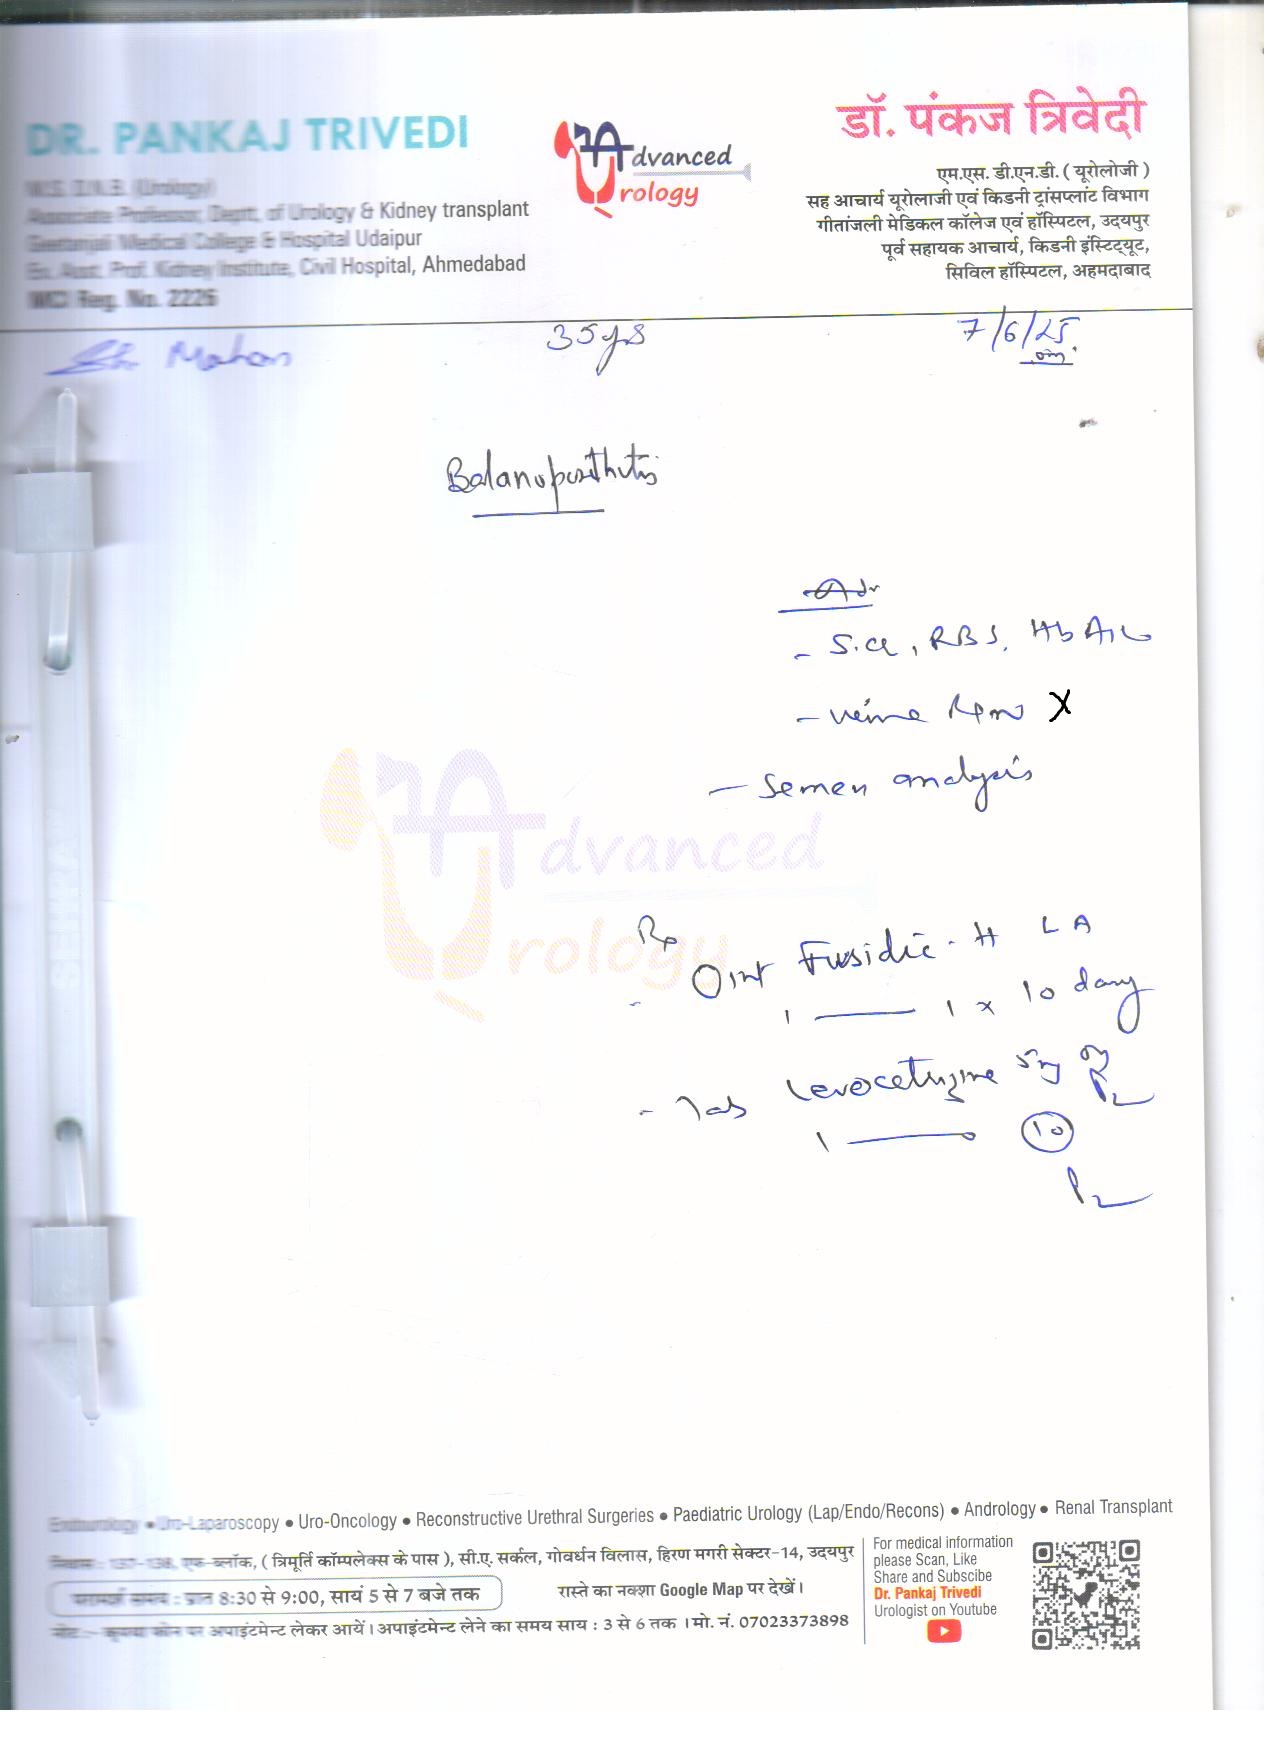 DR. PANKAJ TRIVEDI
M.S. D.N.B. (Urology)
Associate Professor, Deptt. of Urology & Kidney transplant
Geetanjali Medical College & Hospital Udaipur
Ex. Asst. Prof. Kidney Institute, Civil Hospital, Ahmedabad
MCI Reg. No. 2226
Advanced
Urology
डॉ. पंकज त्रिवेदी
एम.एस. डी.एन.डी. ( यूरोलोजी )
सह आचार्य यूरोलाजी एवं किडनी ट्रांसप्लांट विभाग
गीतांजली मेडिकल कॉलेज एवं हॉस्पिटल, उदयपुर
पूर्व सहायक आचार्य, किडनी इंस्टिट्यूट,
सिविल हॉस्पिटल, अहमदाबाद
Mohan 35yrs 7/6/25
Balanoposthitis
Adv
- S.cr, RBS, HbA1c
- urine X
- Semen analysis
Advanced
Urology
Rp
- Oint Fusidic-H LA
1 — 1 x 10 days
- Tab Levocetrizine 5mg
1 — 10
Endourology • Uro-Laparoscopy • Uro-Oncology • Reconstructive Urethral Surgeries • Paediatric Urology (Lap/Endo/Recons) • Andrology • Renal Transplant
निवास : 137-138, एफ-ब्लॉक, ( त्रिमूर्ति कॉम्पलेक्स के पास ), सी.ए. सर्कल, गोवर्धन विलास, हिरण मगरी सेक्टर-14, उदयपुर
परामर्श समय : प्रातः 8:30 से 9:00, सायं 5 से 7 बजे तक
रास्ते का नक्शा Google Map पर देखें।
नोट :- कृपया फोन पर अपाइंटमेन्ट लेकर आयें। अपाइंटमेन्ट लेने का समय साय : 3 से 6 तक । मो. नं. 07023373898
For medical information
please Scan, Like
Share and Subscibe
Dr. Pankaj Trivedi
Urologist on Youtube